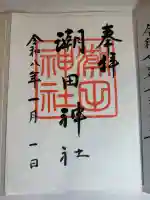 奉拝
潮田神社
令和八年一月一日
潮田
神社
令和